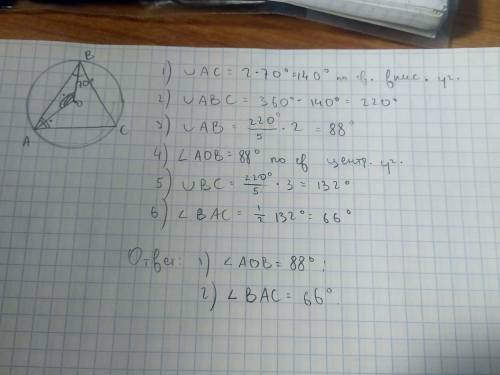 B
70°
O
A
C
1) ∪AC = 2·70° = 140° по св. впис. уг.
2) ∪ABC = 360° - 140° = 220°
3) ∪AB = 220°/5 · 2 = 88°
4) ∠AOB = 88° по св центр. уг.
5) ∪BC = 220°/5 · 3 = 132°
6) ∠BAC = 1/2 132° = 66°
Ответ: 1) ∠AOB = 88°;
2) ∠BAC = 66°.